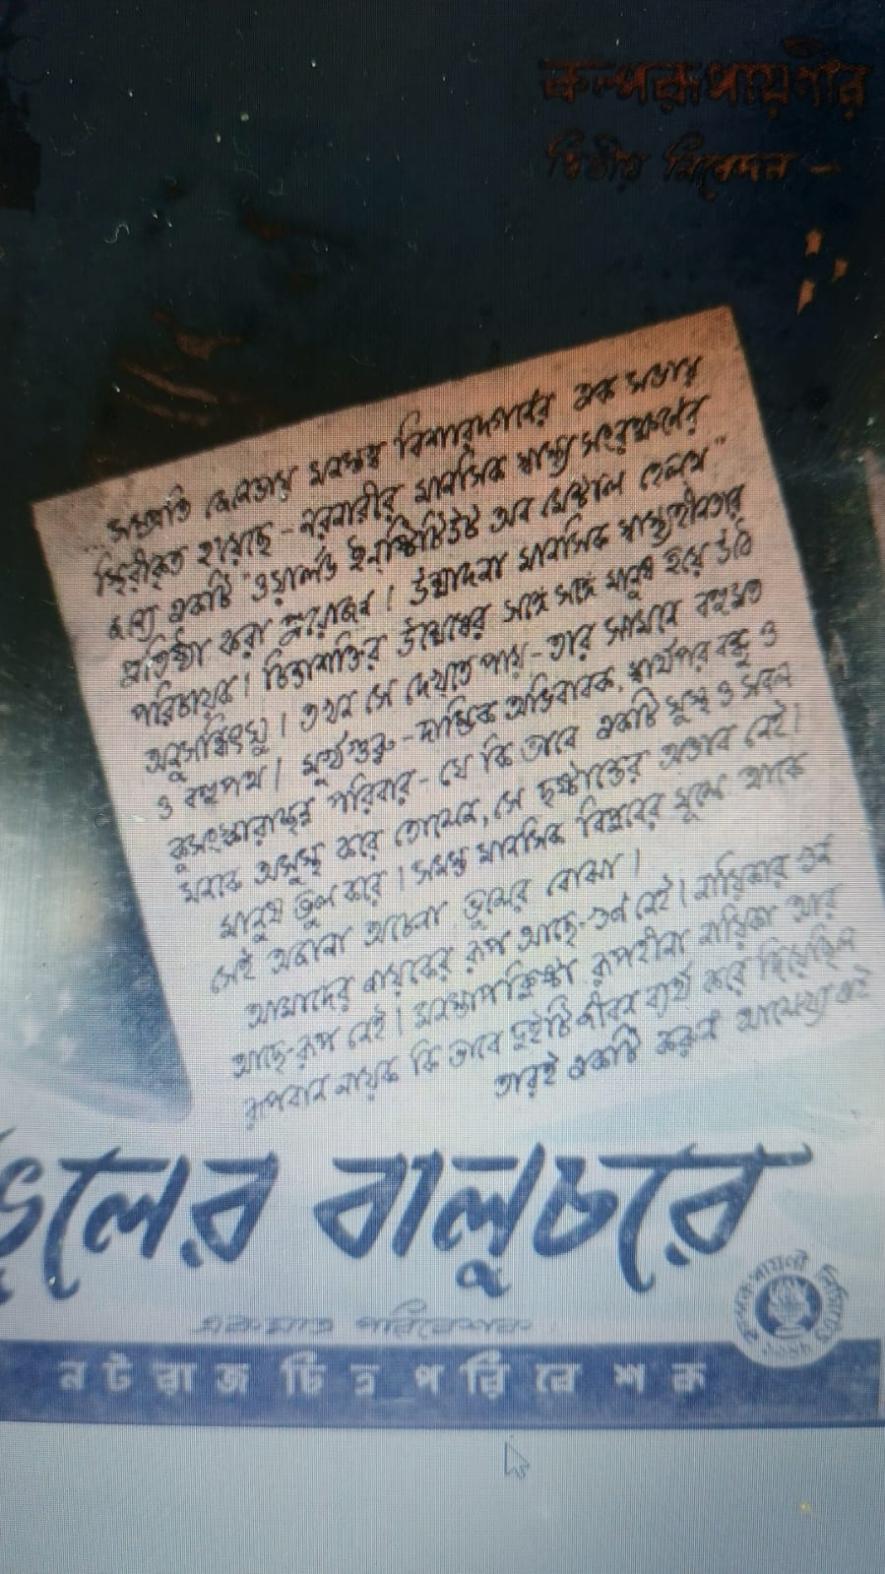 কল্পরূপায়ণীর
দ্বিতীয় নিবেদন —
"সম্প্রতি জেনেভায় মনস্তত্ত্ব বিশারদগণের এক সভায়
স্থিরীকৃত হয়েছে - নরনারীর মানসিক স্বাস্থ্য সংরক্ষণের
জন্য একটি "ওয়ার্লড ইন্‌ষ্টিটিউট অব মেন্টাল হেলথ"
প্রতিষ্ঠা করা প্রয়োজন। উন্মাদনা মানসিক স্বাস্থ্যহীনতার
পরিচায়ক। চিন্তাশক্তির উন্মেষের সঙ্গে সঙ্গে মানুষ হয়ে উঠে
অনুসন্ধিৎসু। তখন সে দেখতে পায় - তার সামনে বহুমত
ও বহুপথ। মূর্খগুরু - দাম্ভিক অভিভাবক, স্বার্থপর বন্ধু ও
কুসংস্কারাচ্ছন্ন পরিবার - যে কি ভাবে একটি সুস্থ ও সবল
মনকে অসুস্থ করে তোলেন, সে দৃষ্টান্তের অভাব নেই।
মানুষ ভুল করে। সমস্ত মানসিক বিপ্লবের মূলে থাকে
সেই অজানা অচেনা ভুলের বোঝা।
আমাদের নায়কের রূপ আছে - গুণ নেই। নায়িকার গুণ
আছে - রূপ নেই। রূপহীনা নায়িকা আর
রূপবান নায়ক কি ভাবে দুইটি জীবন ব্যর্থ করে দিয়েছিল
তারই একটি করুণ আলেখ্য এই
ভুলের বালুচরে
একমাত্র পরিবেশক
নটরাজ চিত্র পরিবেশক